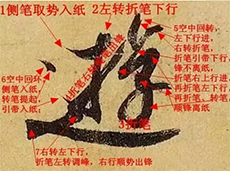 1侧笔取势入纸 2左转折笔下行
5空中回转
左下行进、
右转折笔、
折笔引带下行、
锋不离纸、
折笔右上行进、
再折笔左下行、
再折笔、转笔、
顺锋离纸
6空中回环,
侧锋入纸,
转笔提起,
引带入纸
3折笔
7右转左下行,
折笔左转调峰,右行顺势出锋
遊